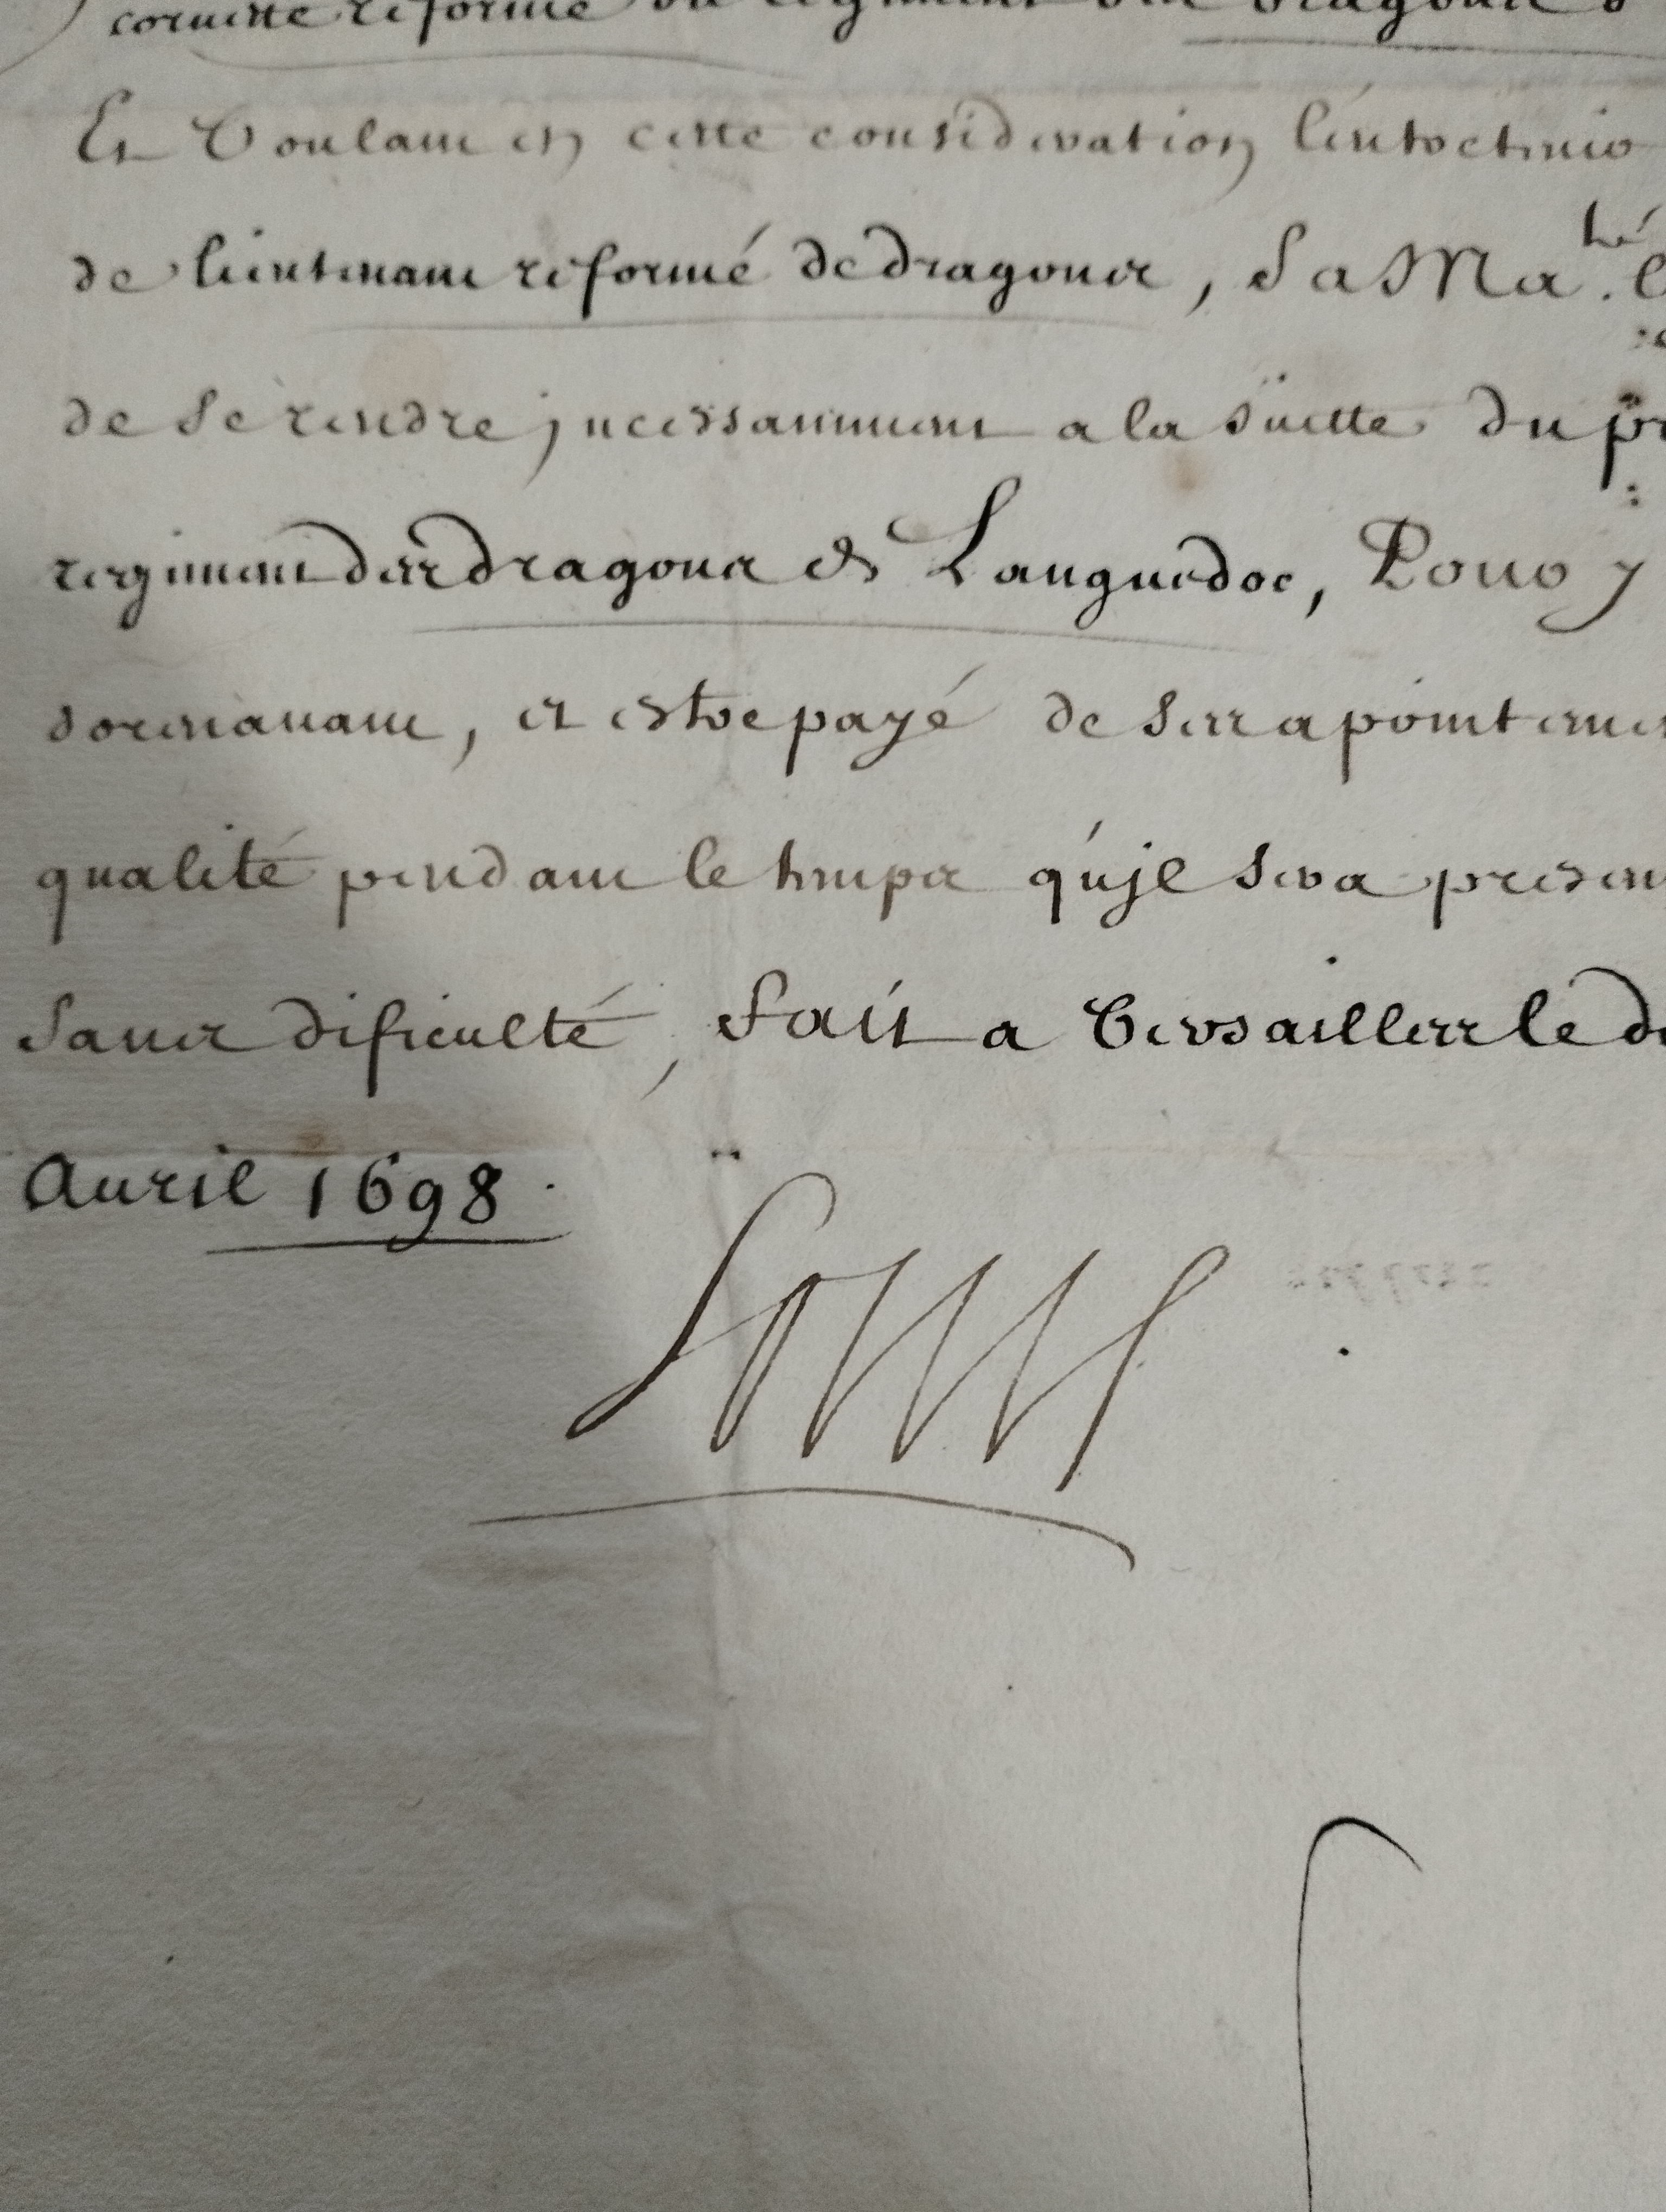 cornette reformé du regiment des dragons d
Et Voulant en cette consideration l'entretenir
de lieutenant reformé de dragons, Sa Ma.té
de se rendre jncessamment a la suitte du pr
regiment des dragons de Languedoc, Pour y
doresnavant, et estre payé de ses apointemen
qualité pendant le temps qu'jl sera presen
sans dificulté, fait a Versailles le d
Auril 1698.
Louis